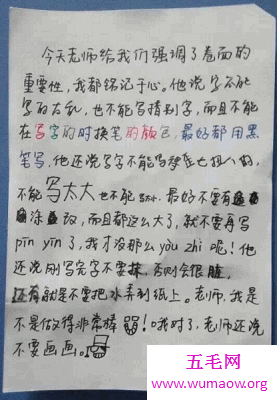 今天老师给我们强调了卷面的
重要性，我都铭记于心。他说字不能
写的太乱，也不能写错别字，而且不能
在写字的时换笔的颜色，最好都用黑
笔写，他还说写字不能写歪歪七扭八的，
不能写太大也不能太小，最好不要有
涂改，而且都这么大了，就不要再写
pīn yīn了，我才没那么yòu zhì呢！他
还说刚写完字不要抹，否则会很脏，
还有就是不要把水弄到纸上。老师，我是
不是做得非常棒！哦对了，老师还说
不要画画。
五毛网
www.wumaow.org